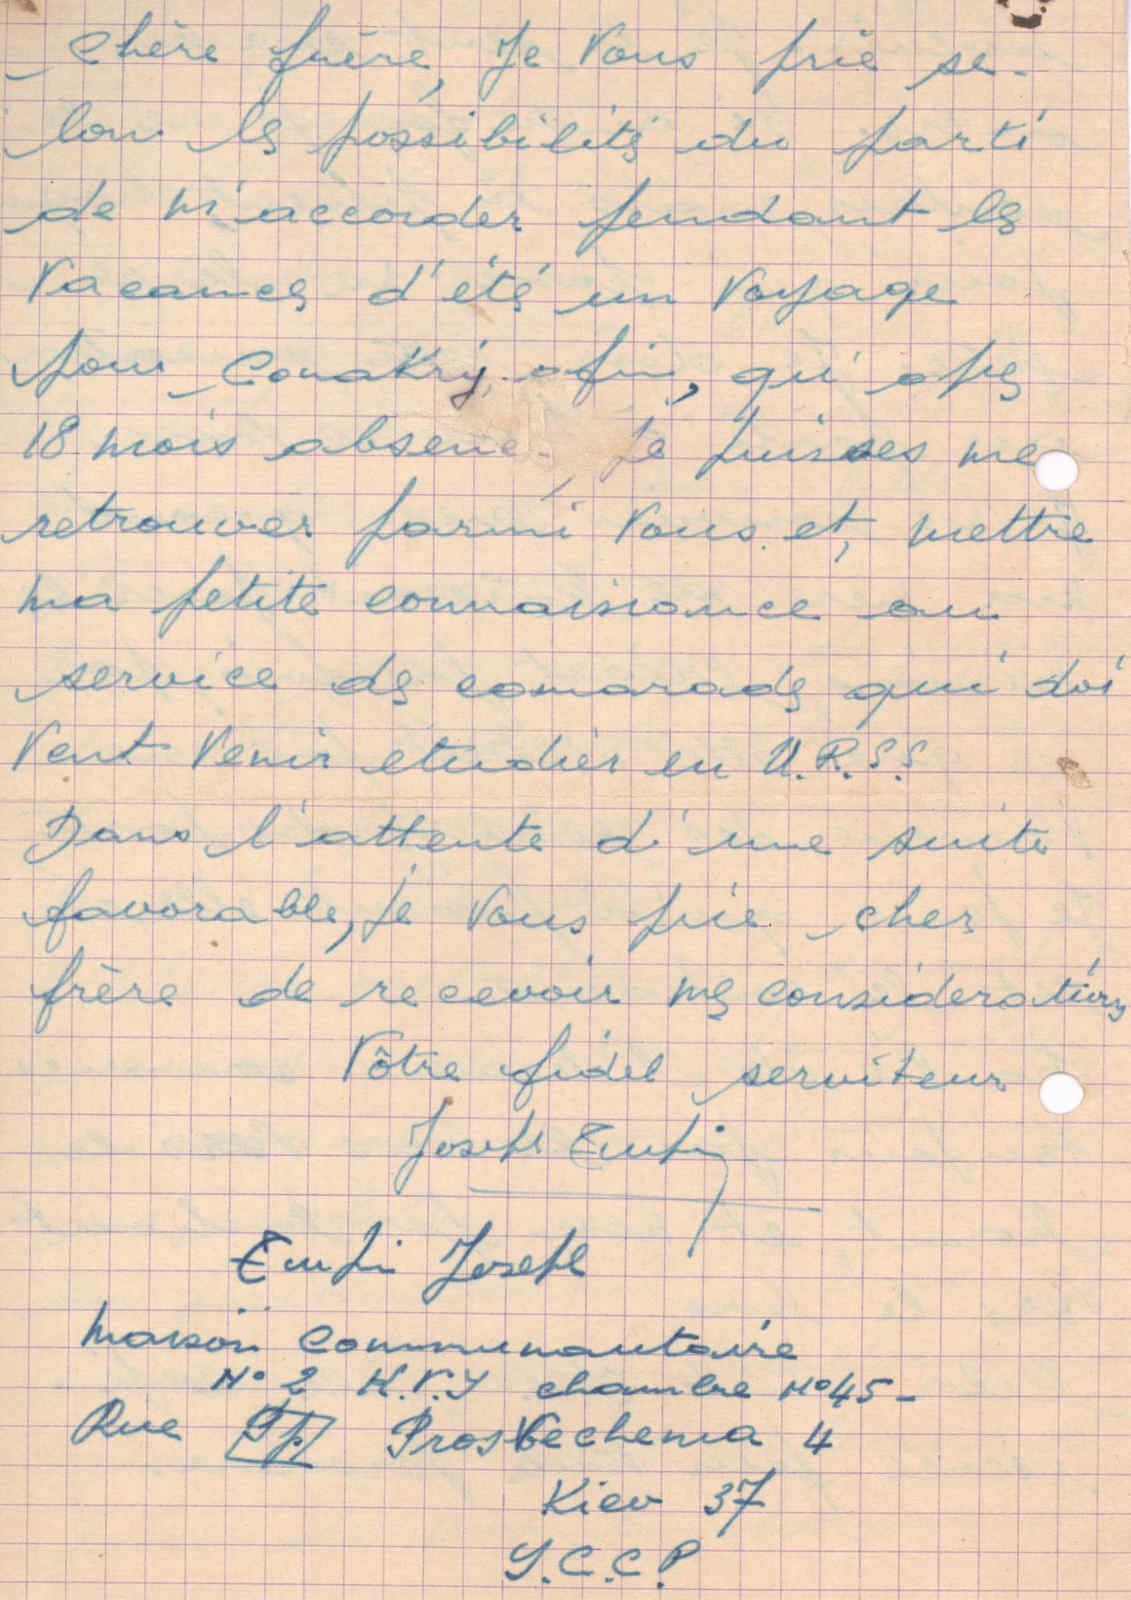 Chère frère, Je Vous prie se-
lon les possibilités du parti
de m'accorder pendant les
Vacances d'été un Voyage
pour Conakry afin, qu'apres
18 mois absence Je puisses me
retrouver parmi Vous et, mettre
ma petite connaissance au
service des camarades qui doi
vent Venir etudier en U.R.S.S
Dans l'attente d'une suite
favorable, je Vous prie cher
frère de recevoir mes considerations
Vôtre fidel serviteur
Joseph Turpin
Turpin Joseph
Maison Communautaire
N° 2 K.V.Y chambre N° 45-
Rue Prosvechenia 4
Kiev 37
Y.C.C.P